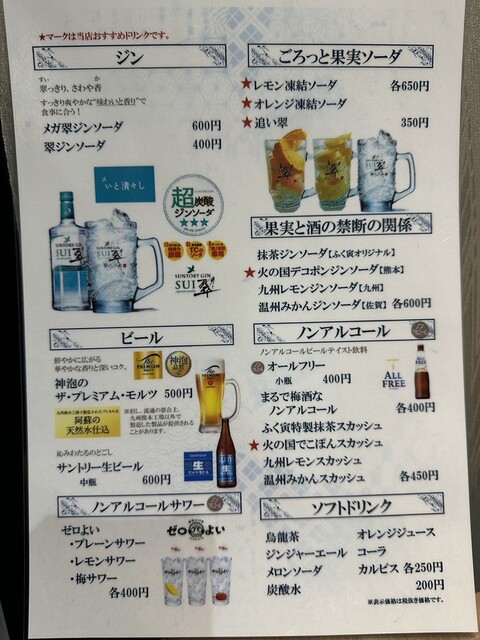 ★マークは当店おすすめドリンクです。
ジン
すい か
翠っきり、さわや香
すっきり爽やかな“味わいと香り”で
食事に合う！
メガ翠ジンソーダ 600円
翠ジンソーダ 400円
いと清々し
超炭酸
ジンソーダ
★★★
SUNTORY GIN
SUI 翠
SUNTORY GIN
SUI 翠
ビール
鮮やかに広がる
華やかな香りと深いコク。
神泡の
ザ・プレミアム・モルツ 500円
神泡
阿蘇の
天然水仕込
※但し、流通の都合上、
九州熊本工場以外で
製造した製品が提供される
ことがあります。
沁みわたるのどごし
サントリー生ビール
中瓶 600円
生
ノンアルコールサワー
ゼロよい
・プレーンサワー
・レモンサワー
・梅サワー
各400円
ゼロよい
ごろっと果実ソーダ
★レモン凍結ソーダ 各650円
★オレンジ凍結ソーダ
★追い翠 350円
果実と酒の禁断の関係
抹茶ジンソーダ【ふく寅オリジナル】
★火の国デコポンジンソーダ【熊本】
九州レモンジンソーダ【九州】
温州みかんジンソーダ【佐賀】 各600円
ノンアルコール
ノンアルコールビールテイスト飲料
★オールフリー
小瓶 400円
ALL
FREE
まるで梅酒な
ノンアルコール 各400円
ふく寅特製抹茶スカッシュ
★火の国でこぽんスカッシュ
九州レモンスカッシュ
温州みかんスカッシュ 各450円
ソフトドリンク
烏龍茶 オレンジジュース
ジンジャーエール コーラ
メロンソーダ カルピス 各250円
炭酸水 200円
※表示価格は税抜き価格です。